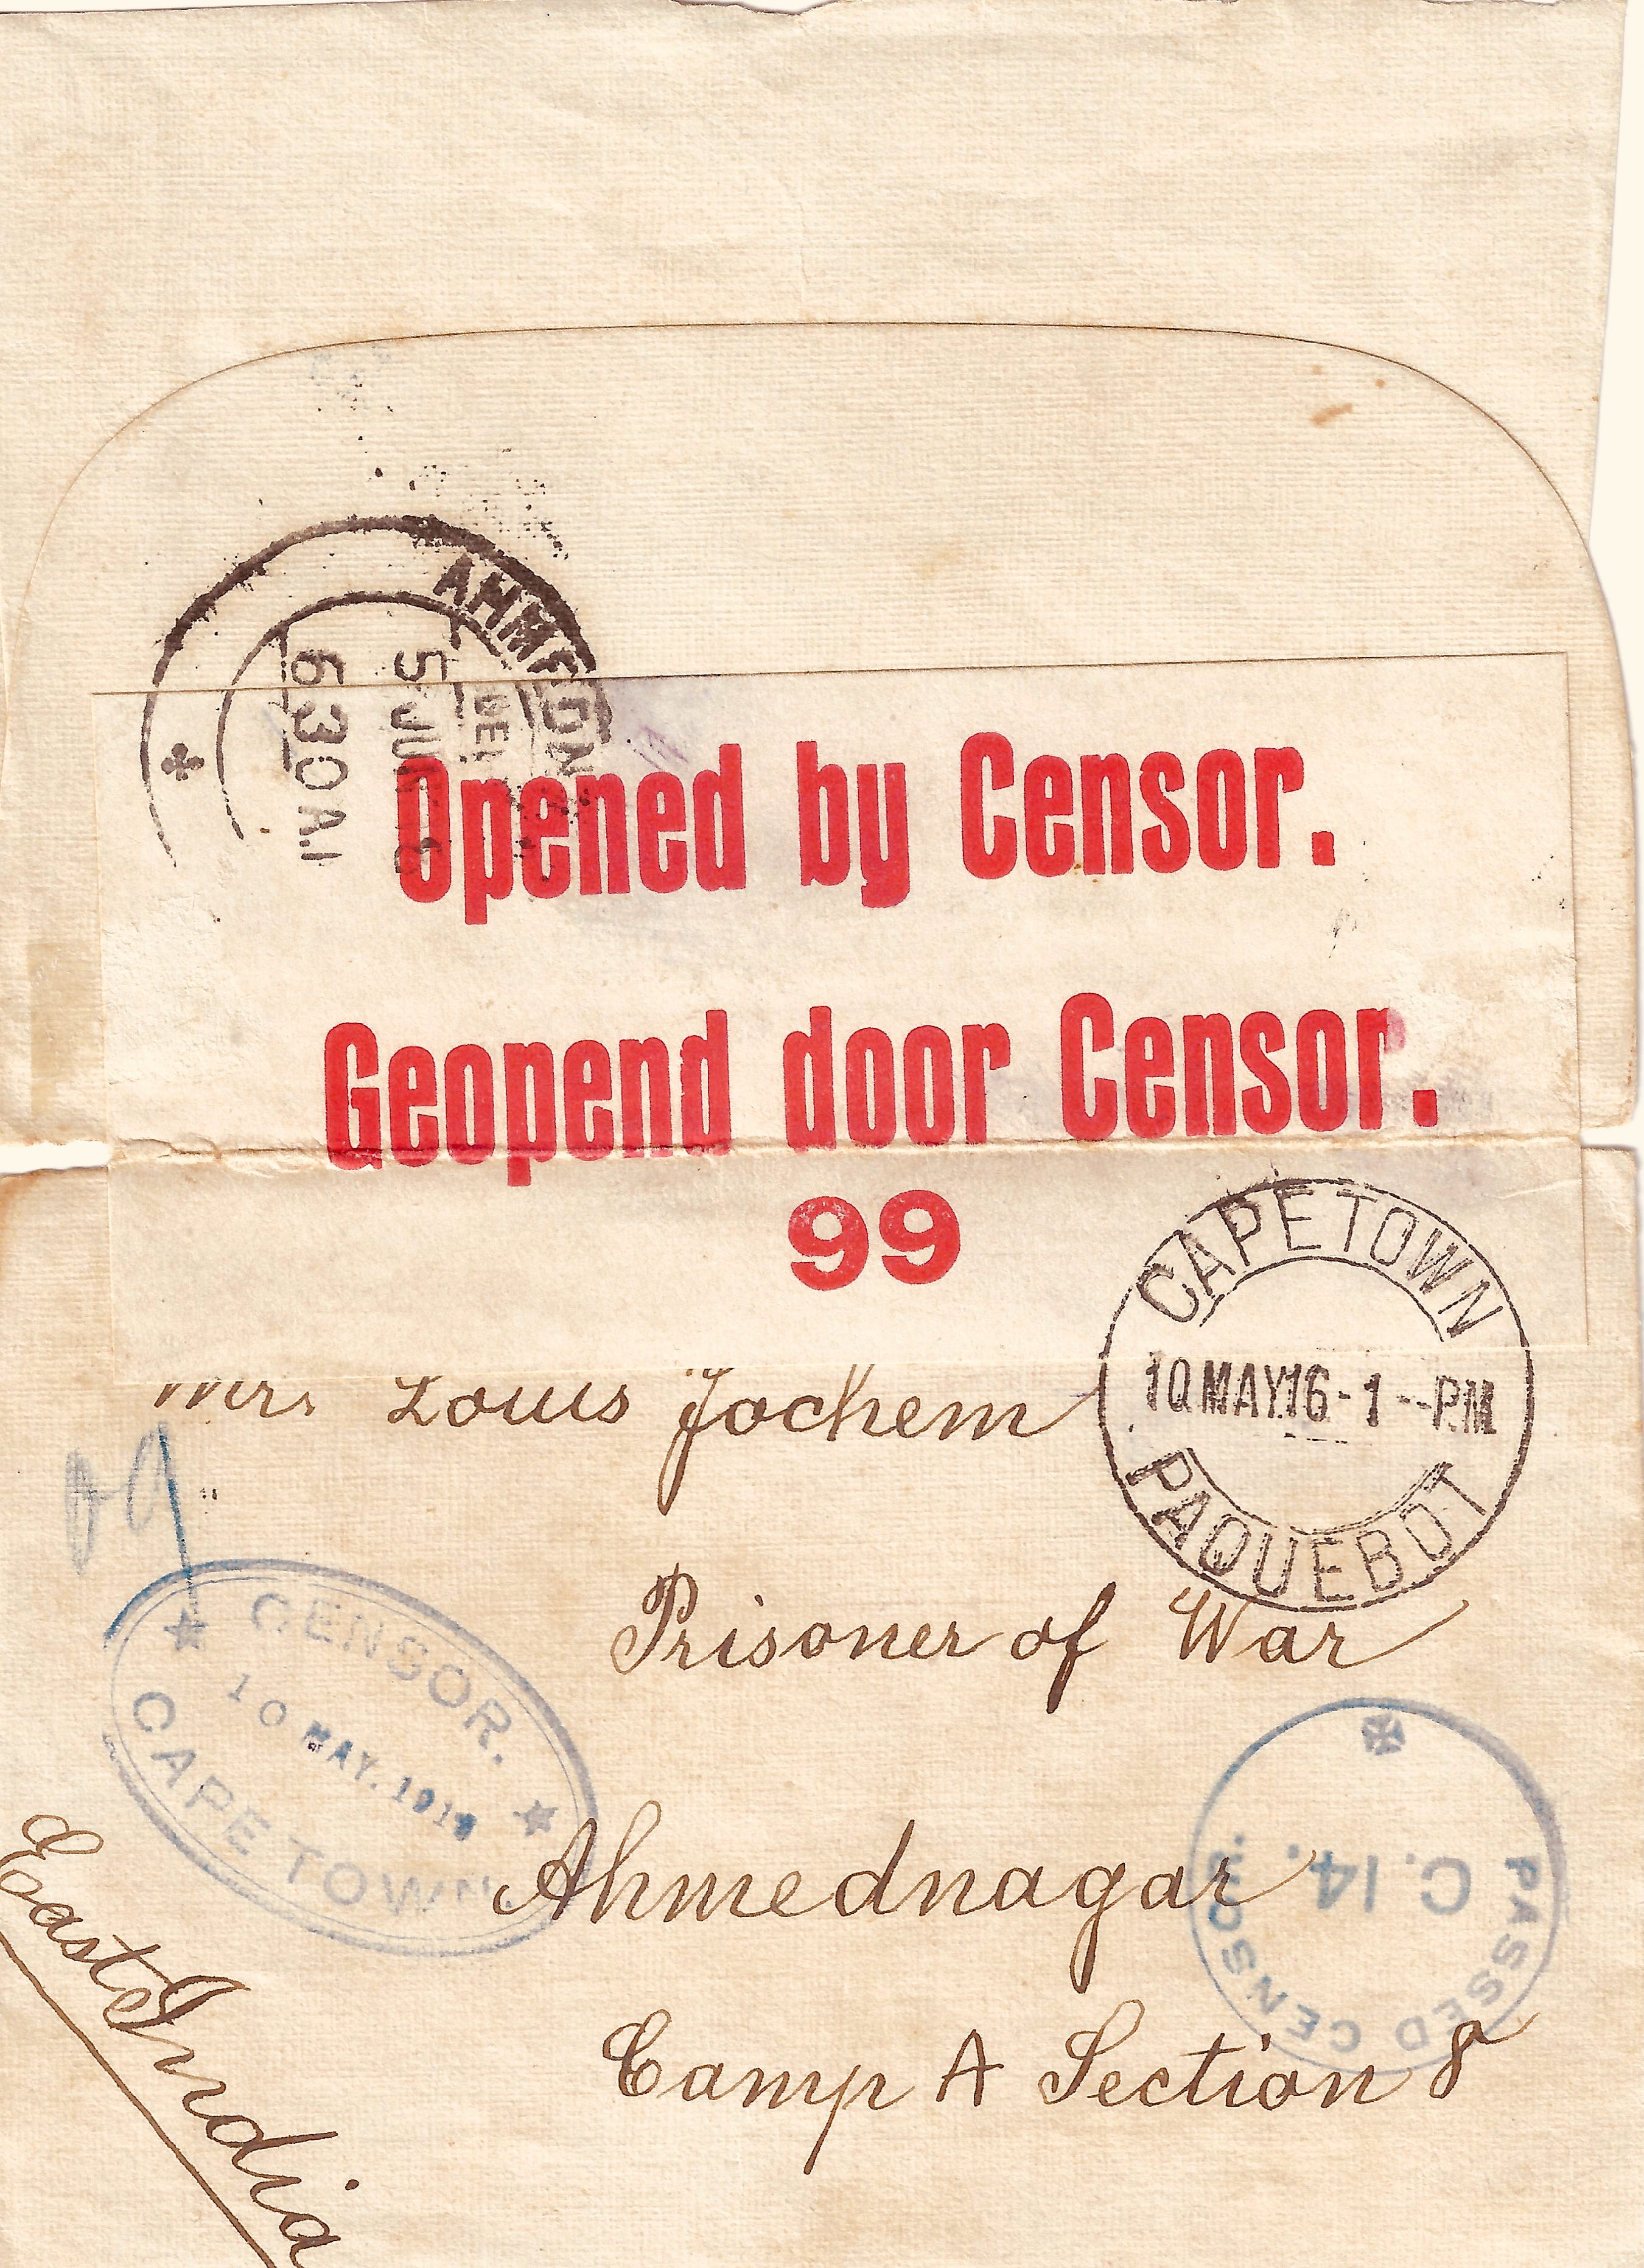 AHMEDN
DEL
5 JUN
6 30 A.
Opened by Censor.
Geopend door Censor.
99
CAPETOWN
10 MAY.16 - 1 - - P.M
PAQUEBOT
Mrs Louis Jochem
Prisoner of War
CENSOR.
10 MAY. 1916
CAPE TOWN.
Ahmednagar
PASSED CENSOR.
C. 14.
Camp A Section 8
East India